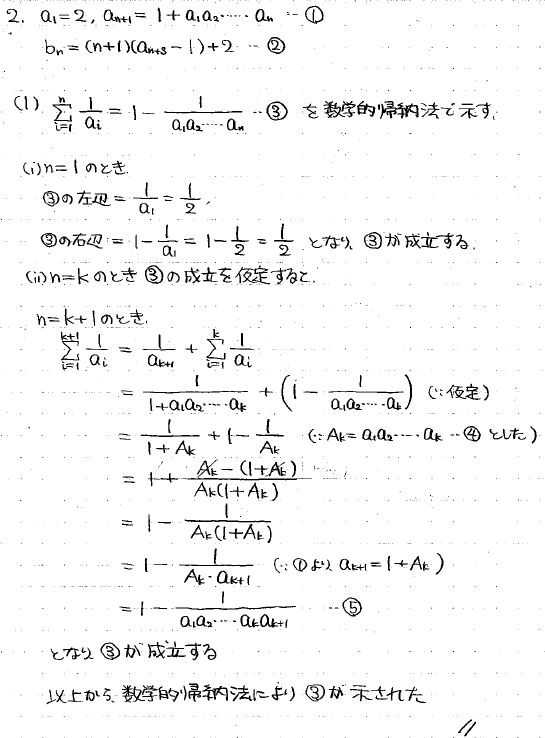 2. a₁=2, aₙ₊₁=1+a₁a₂⋯⋯aₙ ―①
bₙ=(n+1)(aₙ₊₃-1)+2 ―②
(1) Σ_{i=1}^{n} 1/aᵢ = 1 - 1/(a₁a₂⋯⋯aₙ) ―③ を数学的帰納法で示す.
(i) n=1のとき.
③の左辺 = 1/a₁ = 1/2,
③の右辺 = 1 - 1/a₁ = 1 - 1/2 = 1/2 となり, ③が成立する.
(ii) n=kのとき ③の成立を仮定すると.
n=k+1のとき.
Σ_{i=1}^{k+1} 1/aᵢ = 1/aₖ₊₁ + Σ_{i=1}^{k} 1/aᵢ
= 1/(1+a₁a₂⋯⋯aₖ) + (1 - 1/(a₁a₂⋯⋯aₖ)) (∵仮定)
= 1/(1+Aₖ) + 1 - 1/Aₖ (∵Aₖ=a₁a₂⋯⋯aₖ ―④ とした)
= 1 + (Aₖ-(1+Aₖ))/(Aₖ(1+Aₖ))
= 1 - 1/(Aₖ(1+Aₖ))
= 1 - 1/(Aₖ・aₖ₊₁) (∵①より aₖ₊₁=1+Aₖ)
= 1 - 1/(a₁a₂⋯⋯aₖaₖ₊₁) ―⑤
となり, ③が成立する
以上から, 数学的帰納法により ③が示された
//